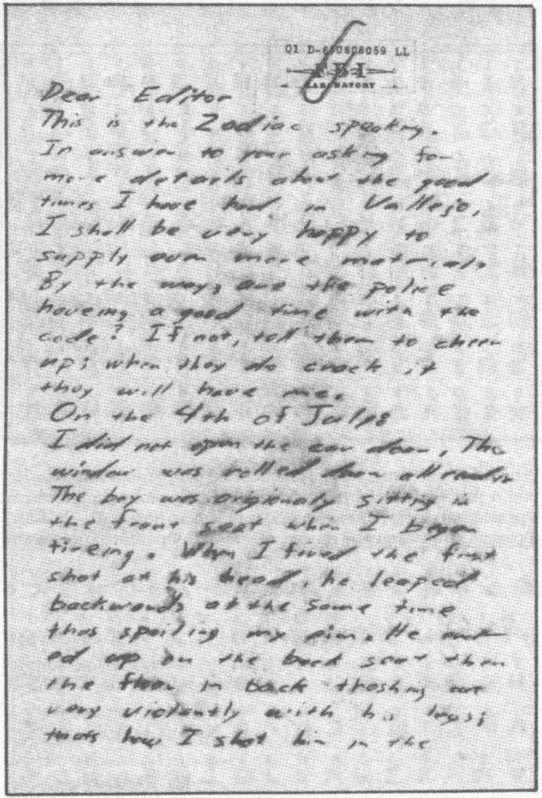 Q1 D-
FBI
LABORATORY
Dear Editor
This is the Zodiac speaking.
In answer to your asking for
more details about the good
times I have had in Vallejo,
I shall be very happy to
supply even more material.
By the way, are the police
haveing a good time with the
code? If not, tell them to cheer
up; when they do crack it
they will have me.
On the 4th of July:
I did not open the car door, The
window was rolled down all ready
The boy was origionaly sitting in
the front seat when I began
fireing. When I fired the first
shot at his head, he leaped
backwards at the same time
thus spoiling my aim. He end
ed up on the back seat then
the floor in back thashing out
very violently with his legs;
thats how I shot him in the